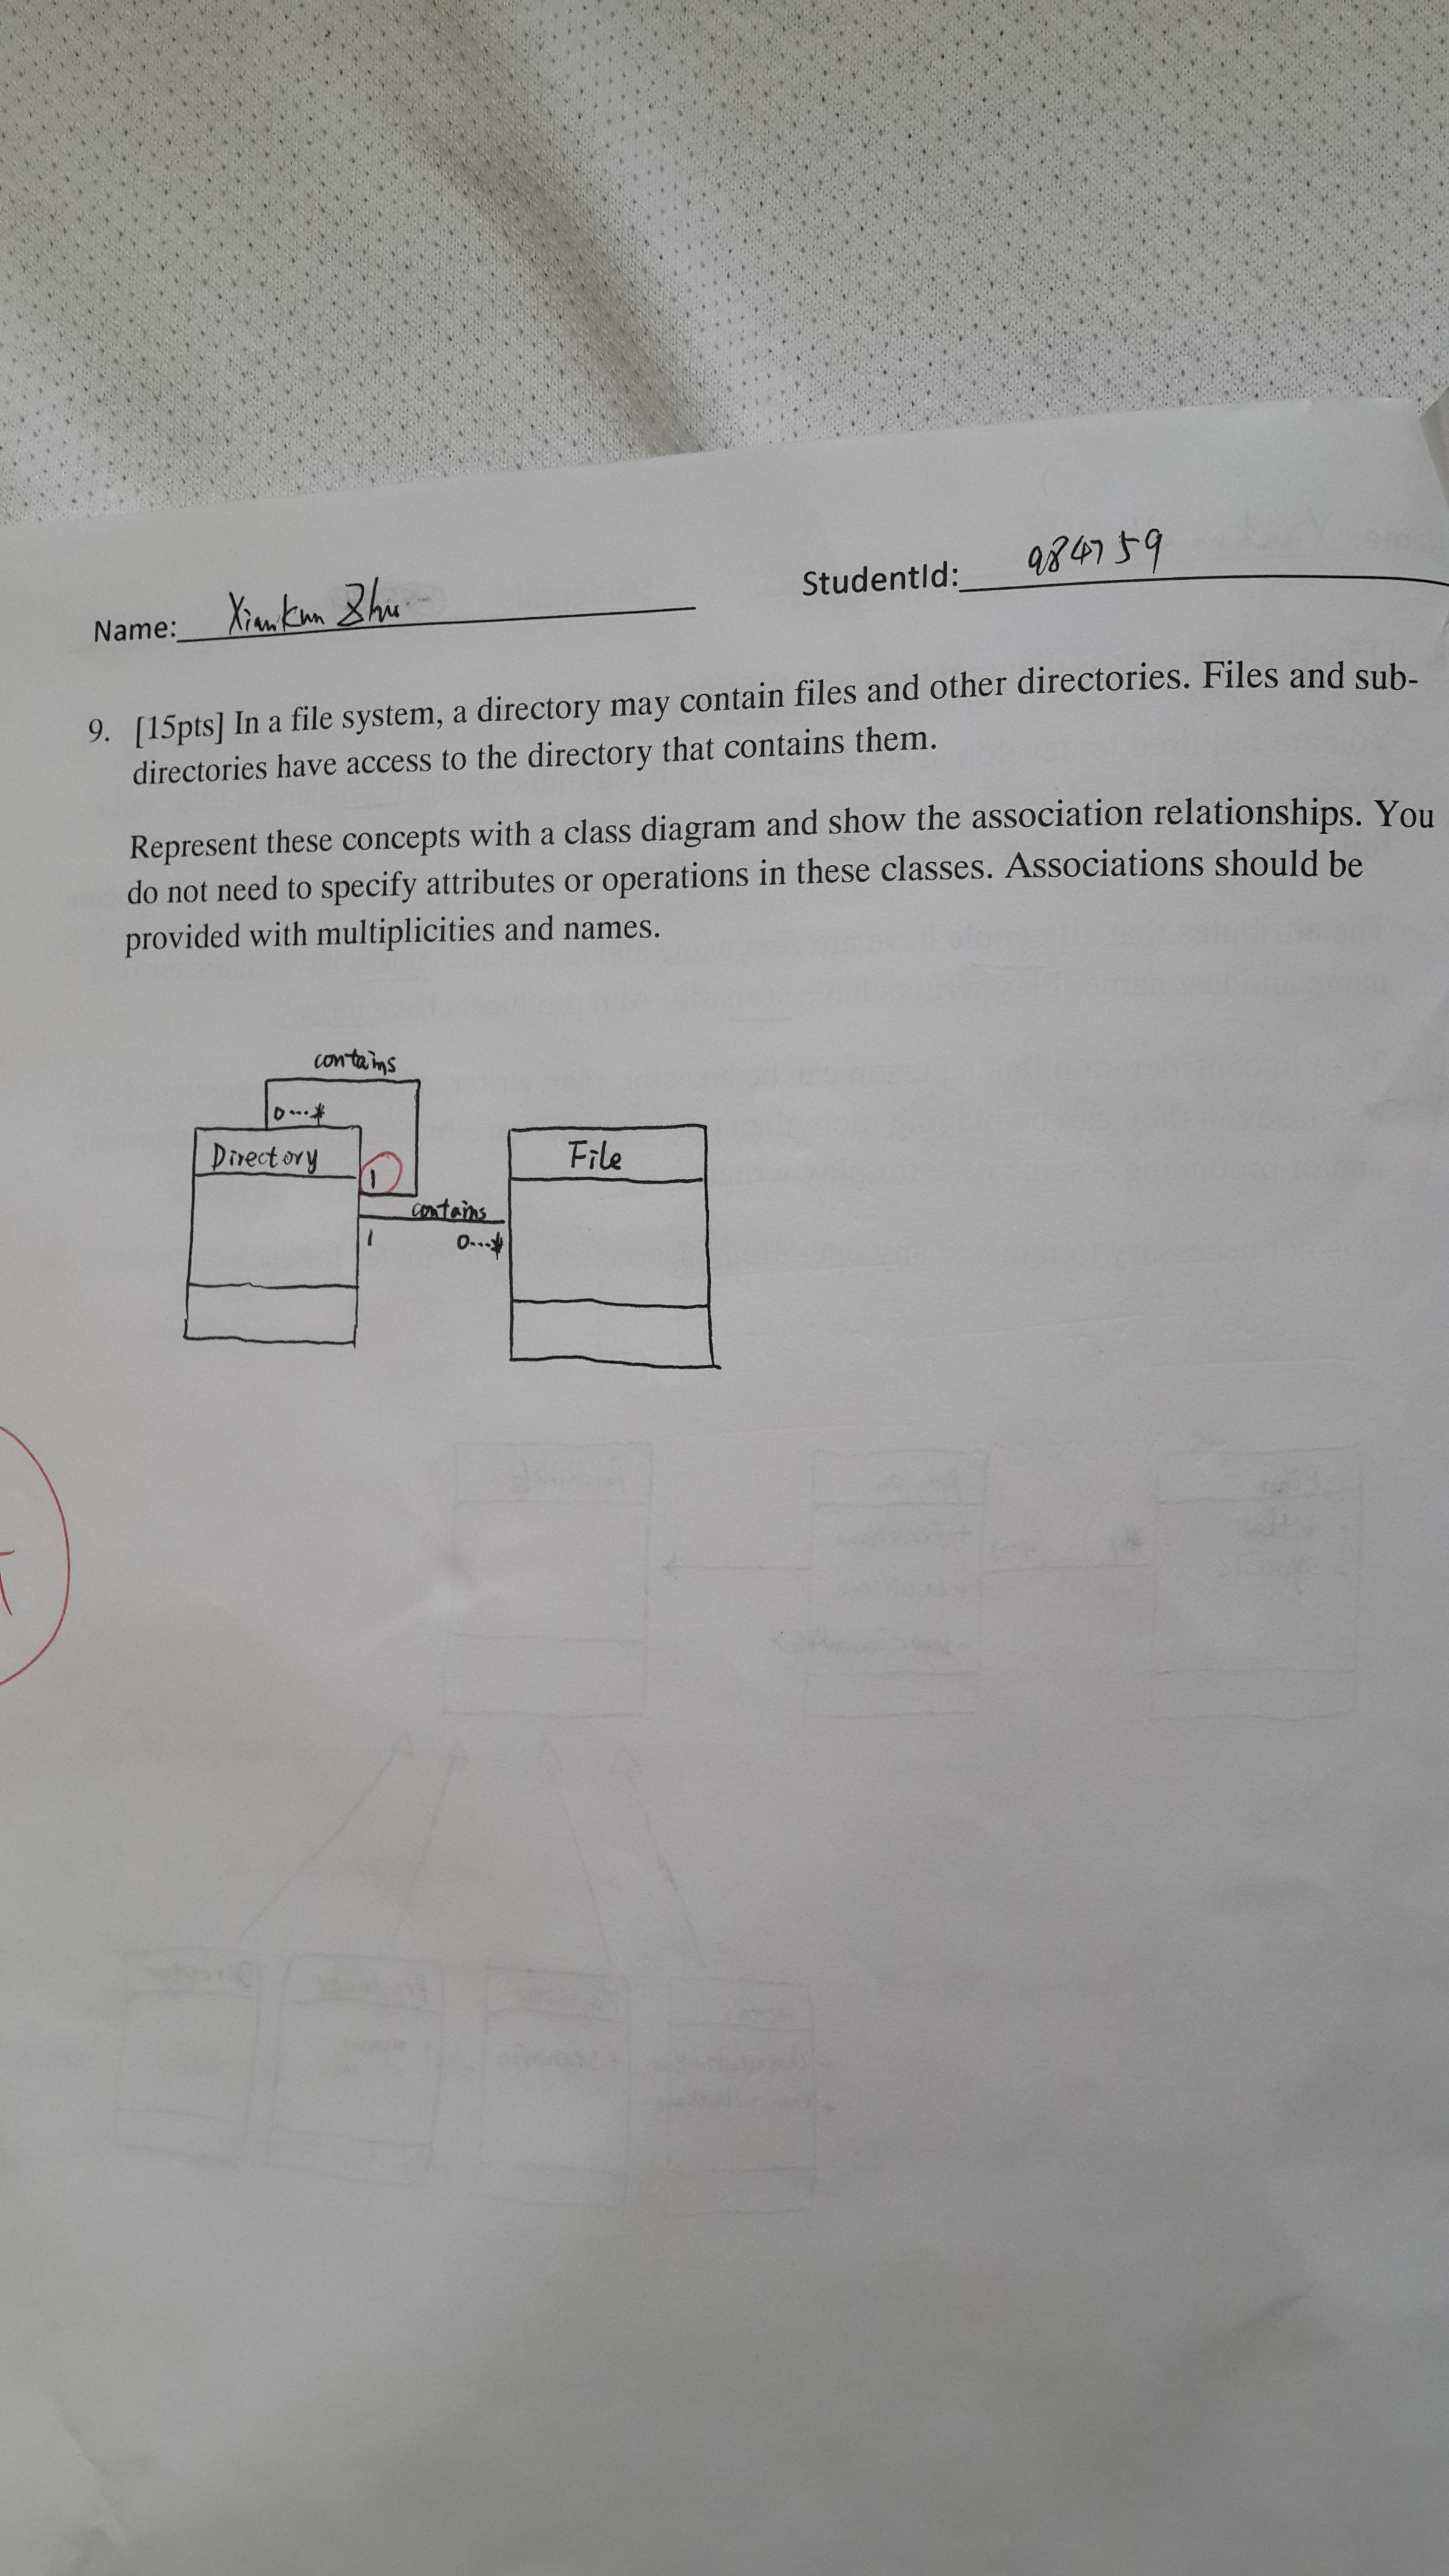 Name: Xiankun Zhu
StudentId: 984759
9. [15pts] In a file system, a directory may contain files and other directories. Files and sub-
directories have access to the directory that contains them.
Represent these concepts with a class diagram and show the association relationships. You
do not need to specify attributes or operations in these classes. Associations should be
provided with multiplicities and names.
contains
0...*
Directory
File
1
contains
1
0...*